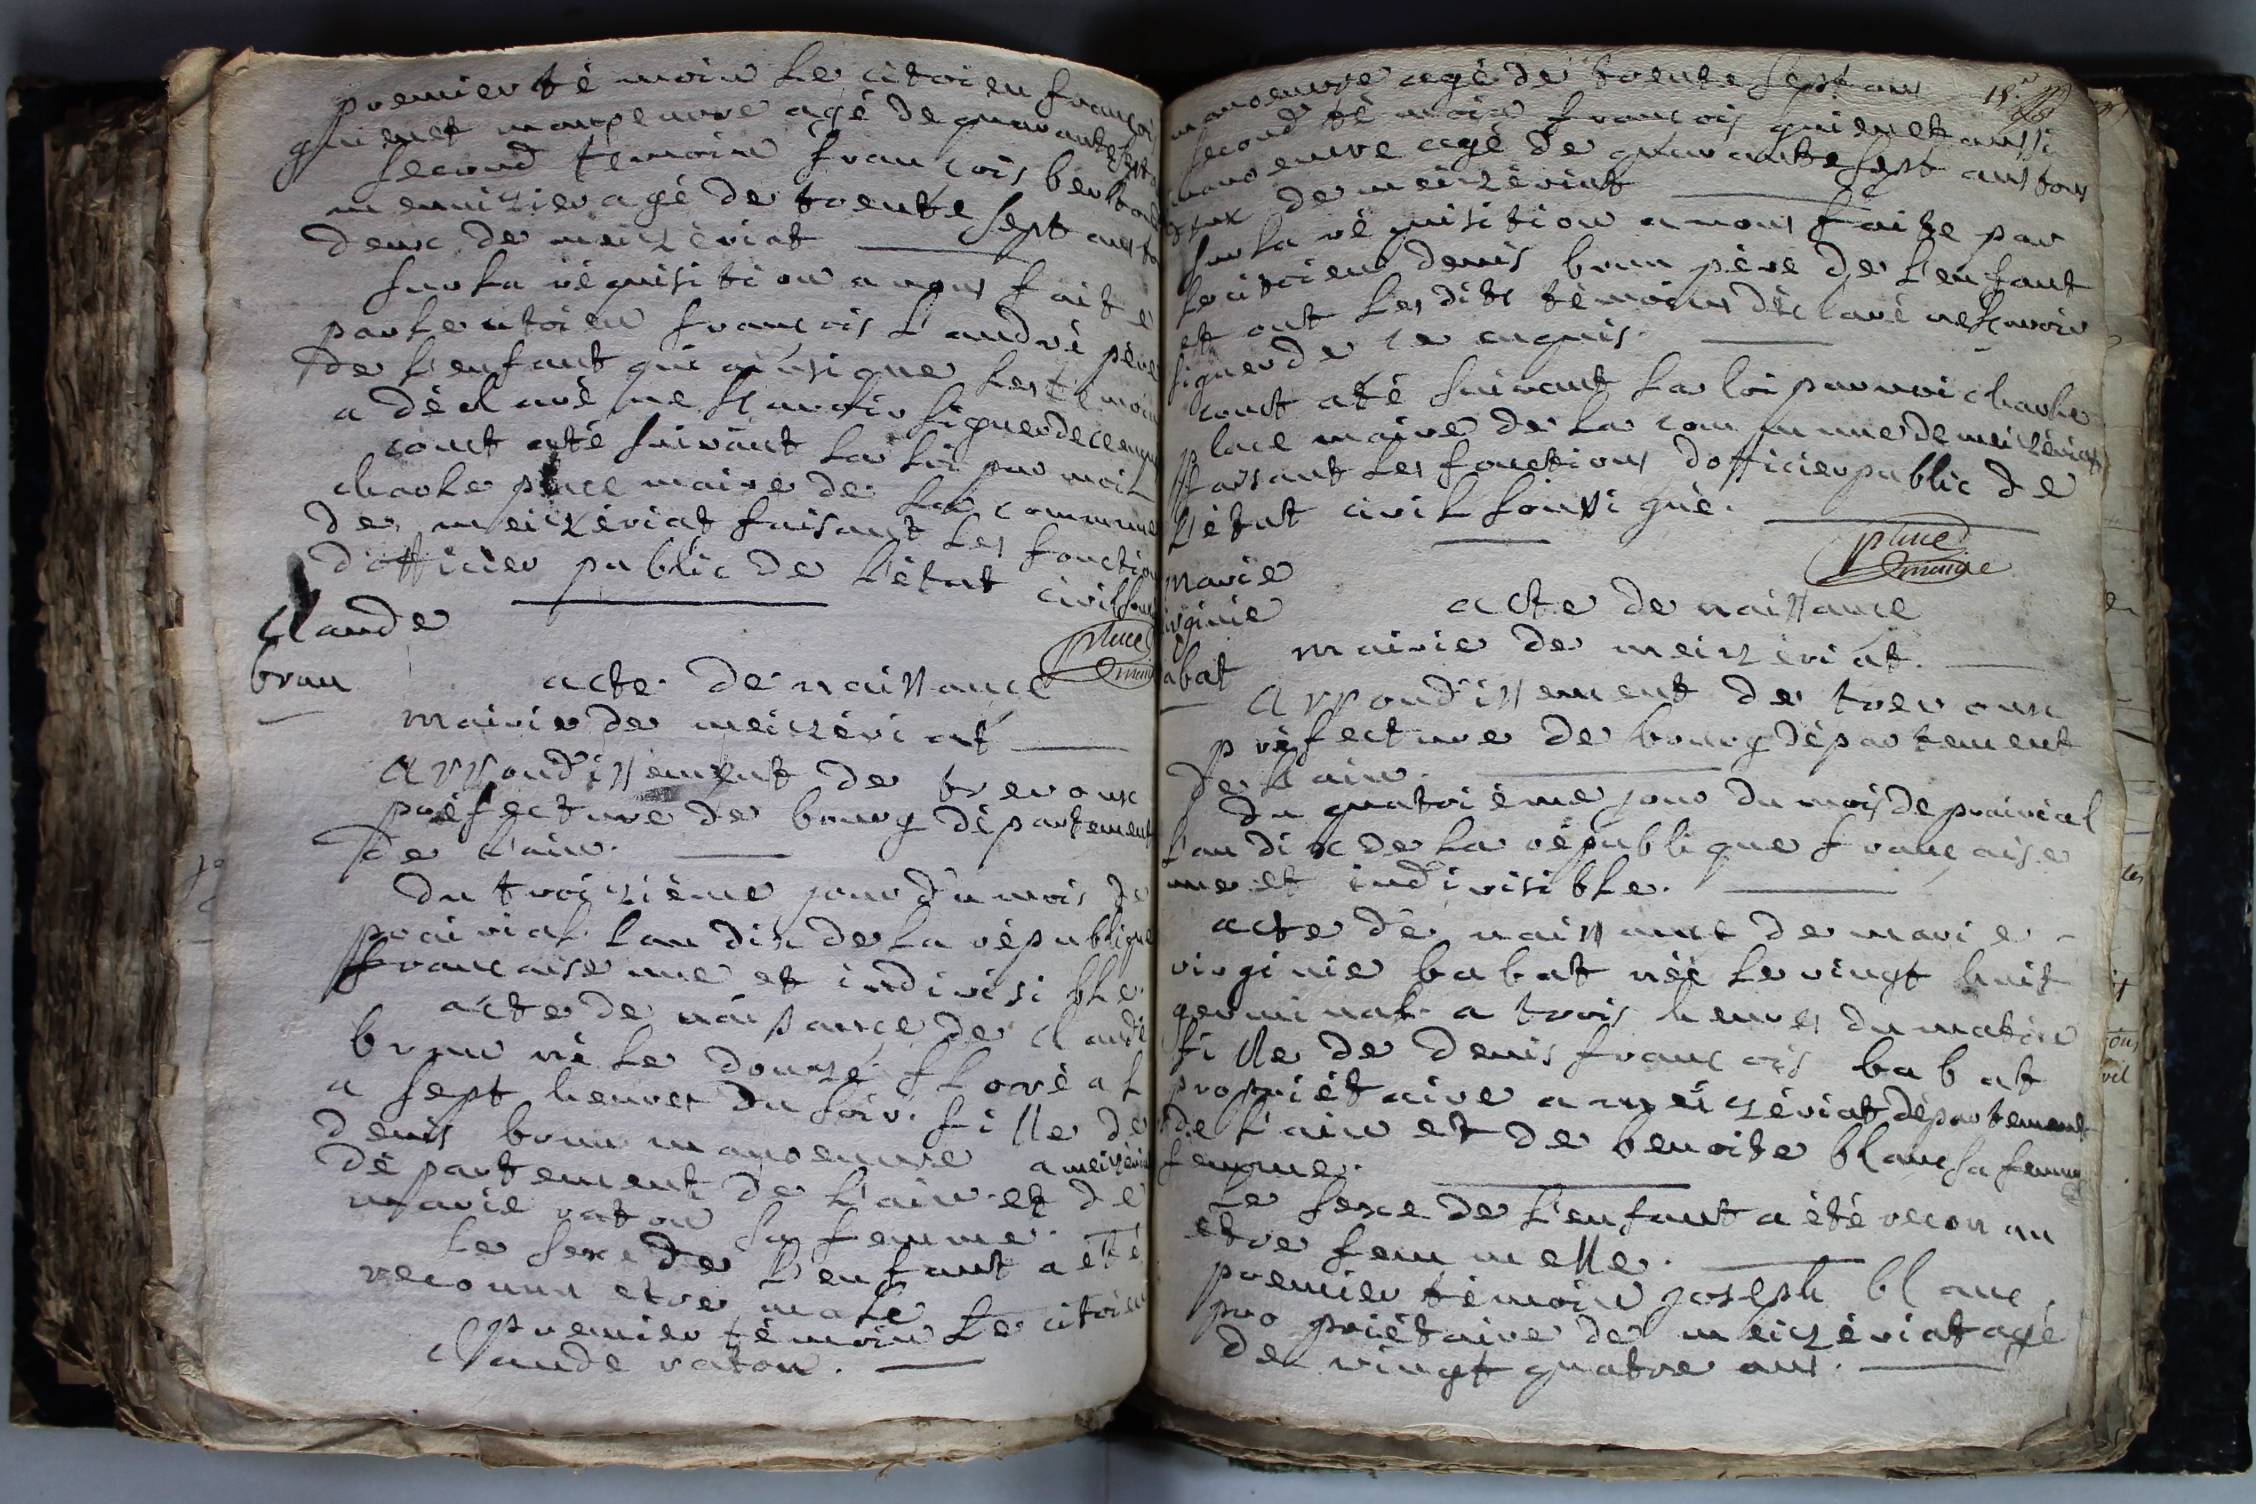 premier témoin le citoien françoi
guienet manoeuvre agé de quarante sept
second temoin francois berto
menuizier agé de trente sept ans to
deux de meizériat
sur la réquisition a nous faite
par le citoien francois Landré père
de l'enfant qui ainsi que les témoin
a déclaré ne sçavoir signer de ce enqui
constaté suivant la loi par moi
charle place maire de la commune
de meizériat faisant les fonction
d'officier public de l'état civil sou
place
maire
Claude
brun
acte de naissance
mairie de meizériat
arrondissement de trevoux
préfecture de bourg département
de l'ain.
du troizième jour du mois de
prairial l'an dix de la république
francaise une et indivisible
acte de naissance de claude
brun né le douze floréal
a sept heures du soir. fille de
denis brun manoeuvre a meizéria
département de l'ain et de
marie raton sa femme.
le sexe de l'enfant a été
reconnu etre male
premier témoin le citoien
claude raton.
18.e
manoeuvre agé de trente sept ans
second témoin francois guienet aussi
manoeuvre agé de quarante sept ans tous
deux de meizériat
sur la réquisition a nous faite par
le citoien denis brun père de l'enfant
et ont les dits témoins déclaré ne sçavoir
signer de ce enquis.
constaté suivant la loi par moi charle
place maire de la commune de meizériat
faisant les fonctions d'officier public de
l'état civil soussigné.
place
maire
marie
virginie
babat
acte de naissance
mairie de meizériat.
arrondissement de trevoux
préfecture de bourg département
de l'ain.
du quatrième jour du mois de prairial
l'an dix de la république française
une et indivisible.
acte de naissance de marie
virginie babat née le vingt huit
germinal a trois heures du matin
fille de denis francois babat
propriétaire a meizériat département
de l'ain et de benoite blanc sa femme
femme.
le sexe de l'enfant a été reconnu
etre femmelle.
premier témoin joseph blanc
propriétaire de meizériat agé
de vingt quatre ans.